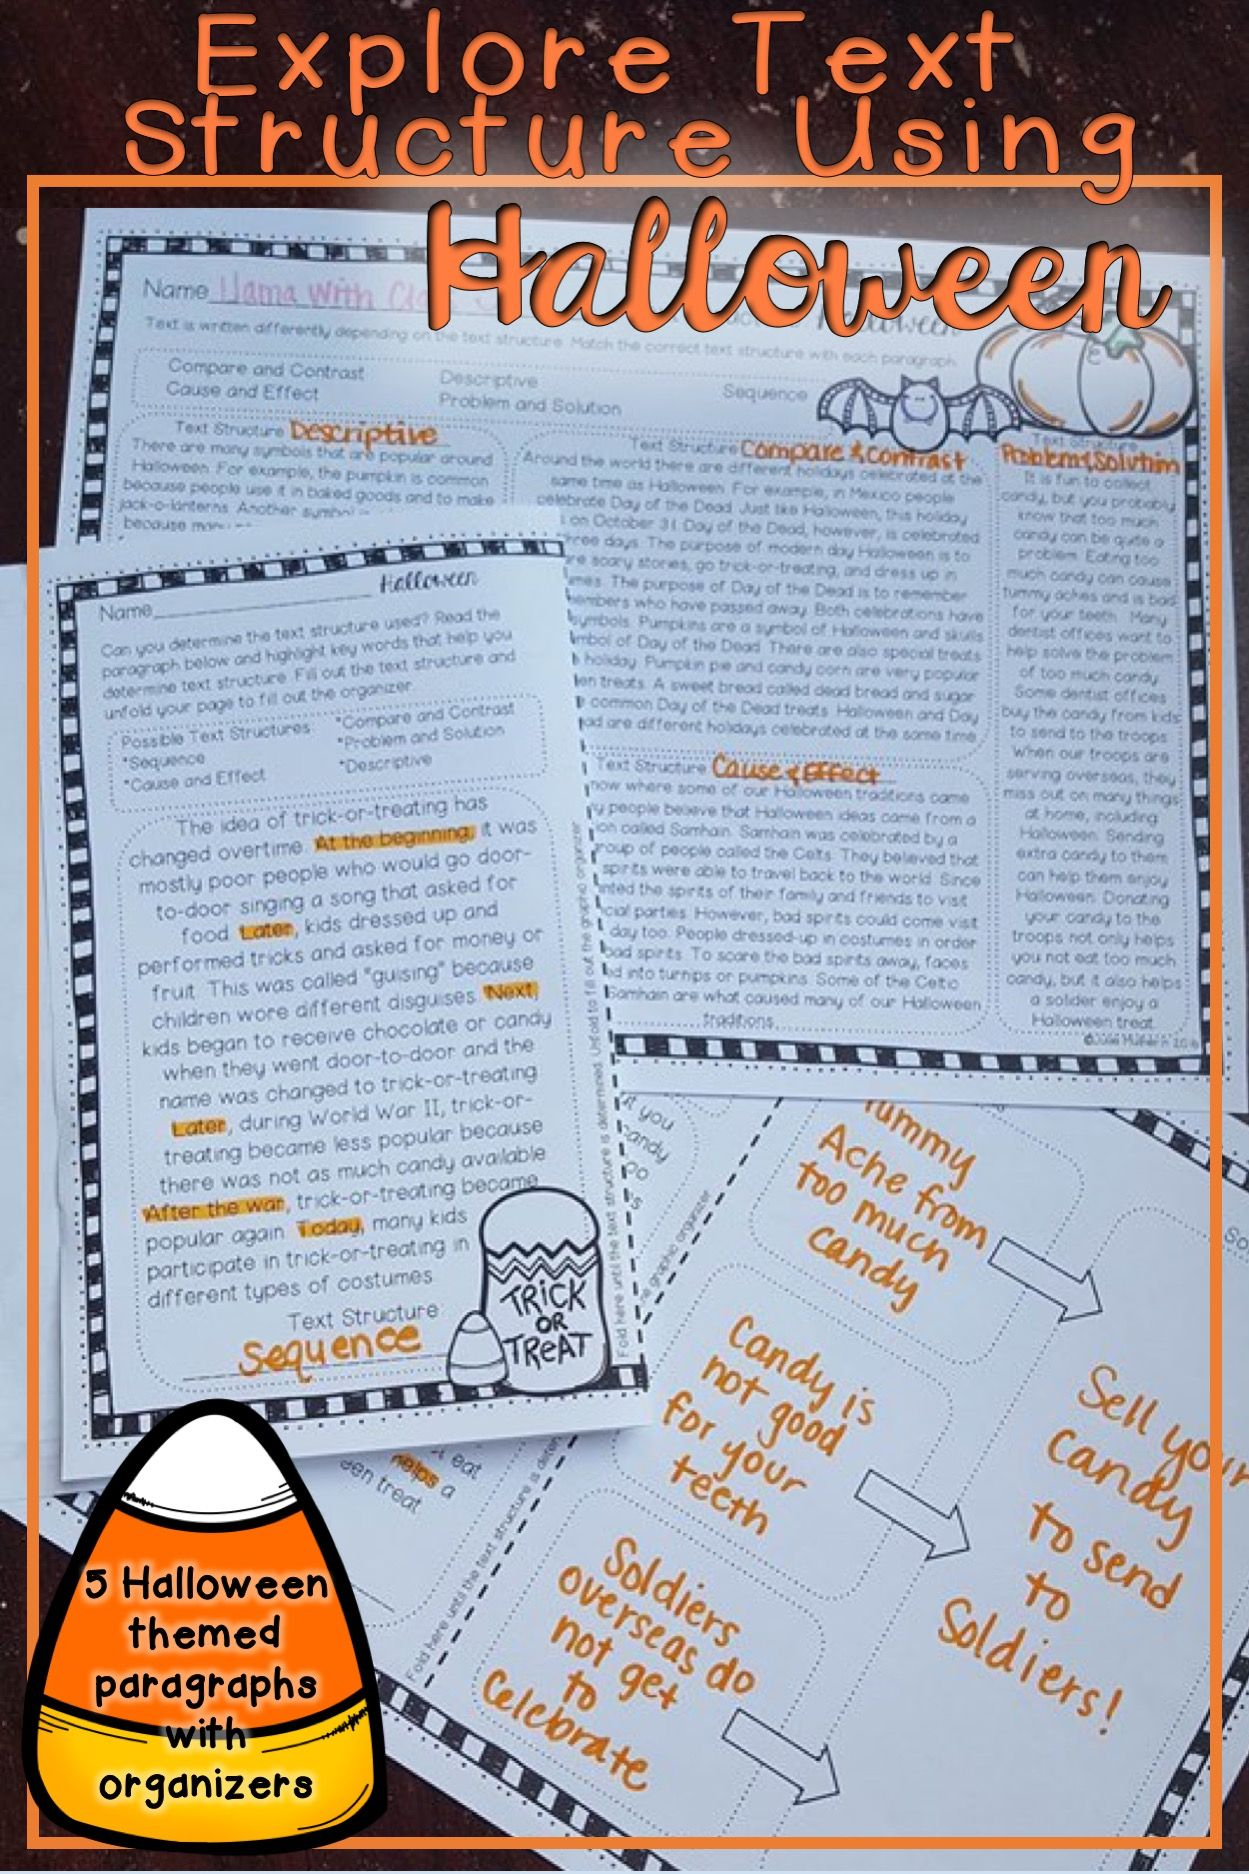 Explore Text
Structure Using
Halloween
Name Llama With
Text is written differently depending on the text structure. Match the correct text structure with each paragraph.
Compare and Contrast
Cause and Effect
Descriptive
Problem and Solution
Sequence
Text Structure Descriptive
There are many symbols that are popular around
Halloween. For example, the pumpkin is common
because people use it in baked goods and to make
jack-o-lanterns. Another symbol is
because many
Text Structure Compare & Contrast
Around the world there are different holidays celebrated at the
same time as Halloween. For example, in Mexico people
celebrate Day of the Dead. Just like Halloween, this holiday
on October 31. Day of the Dead, however, is celebrated
three days. The purpose of modern day Halloween is to
scary stories, go trick-or-treating, and dress up in
The purpose of Day of the Dead is to remember
members who have passed away. Both celebrations have
symbols. Pumpkins are a symbol of Halloween and skulls
of Day of the Dead. There are also special treats
holiday. Pumpkin pie and candy corn are very popular
treats. A sweet bread called dead bread and sugar
common Day of the Dead treats. Halloween and Day
are different holidays celebrated at the same time.
Text Structure Cause & Effect
now where some of our Halloween traditions came
people believe that Halloween ideas came from a
called Samhain. Samhain was celebrated by a
group of people called the Celts. They believed that
spirits were able to travel back to the world. Since
the spirits of their family and friends to visit
parties. However, bad spirits could come visit
day too. People dressed-up in costumes in order
bad spirits. To scare the bad spirits away, faces
into turnips or pumpkins. Some of the Celtic
Samhain are what caused many of our Halloween
traditions.
Text Structure
Problem & Solution
It is fun to collect
candy, but you probably
know that too much
candy can be quite a
problem. Eating too
much candy can cause
tummy aches and is bad
for your teeth. Many
dentist offices want to
help solve the problem
of too much candy.
Some dentist offices
buy the candy from kids
to send to the troops.
When our troops are
serving overseas, they
miss out on many things
at home, including
Halloween. Sending
extra candy to them
can help them enjoy
Halloween. Donating
your candy to the
troops not only helps
you not eat too much
candy, but it also helps
a solider enjoy a
Halloween treat.
Halloween
Name
Can you determine the text structure used? Read the
paragraph below and highlight key words that help you
determine text structure. Fill out the text structure and
unfold your page to fill out the organizer.
Possible Text Structures:
*Sequence
*Cause and Effect
*Compare and Contrast
*Problem and Solution
*Descriptive
The idea of trick-or-treating has
changed overtime. At the beginning, it was
mostly poor people who would go door-
to-door singing a song that asked for
food. Later, kids dressed up and
performed tricks and asked for money or
fruit. This was called "guising" because
children wore different disguises. Next,
kids began to receive chocolate or candy
when they went door-to-door and the
name was changed to trick-or-treating
Later, during World War II, trick-or-
treating became less popular because
there was not as much candy available.
After the war, trick-or-treating became
popular again. Today, many kids
participate in trick-or-treating in
different types of costumes.
Text Structure
Sequence
TRICK
OR
TREAT
Fold here until the text structure is determined. Unfold to fill out the graphic organizer
the graphic organizer
you
candy
eat
helps a
treat
Fold here until the text structure is
Tummy
Ache from
too much
candy
Candy is
not good
for your
teeth
Soldiers
overseas do
not get
to
Celebrate
Sell your
Candy
to send
to
Soldiers!
5 Halloween
themed
paragraphs
with
organizers